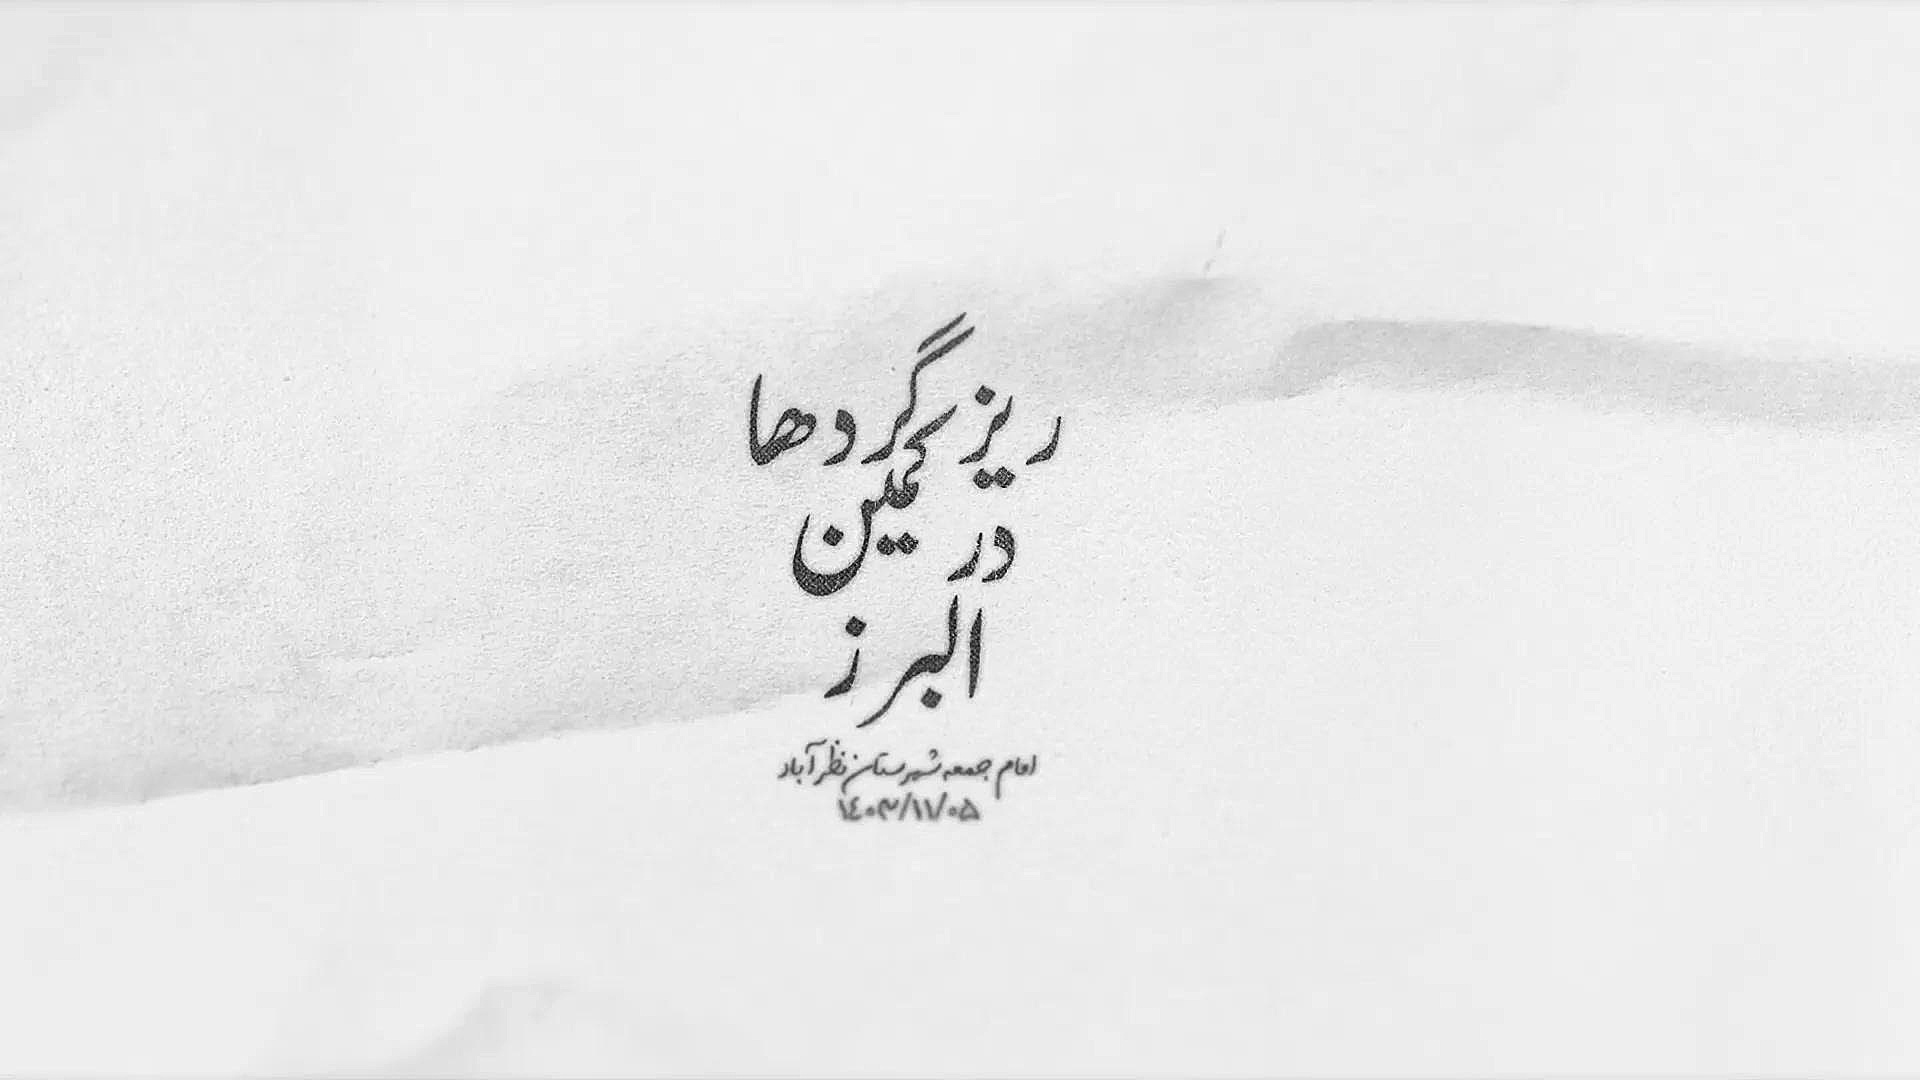 ریزگردها
در کمین
البرز
امام جمعه شهرستان نظرآباد
۱۴۰۳/۱۱/۰۵